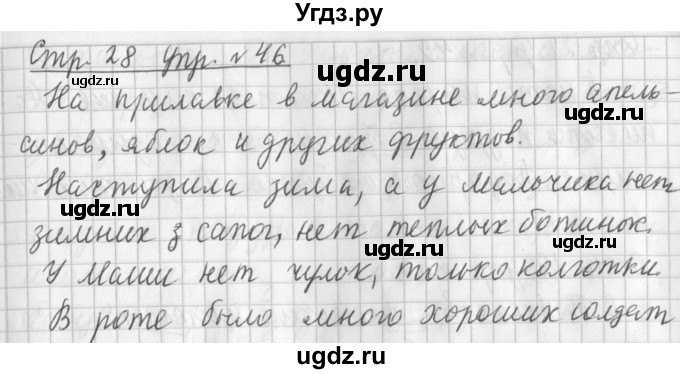 Угдз.ру
Стр. 28 упр. № 46
ugdz.ru
ugdz.ru
На прилавке в магазине много апель-
ugdz.ru
синов, яблок и других фруктов.
ugdz.ru
Наступила зима, а у мальчика нет
ugdz.ru
зимних з сапог, нет теплых ботинок.
ugdz.ru
ugdz.ru
У Маши нет чулок, только колготки
ugdz.ru
В роте было много хороших солдат
ugdz.ru